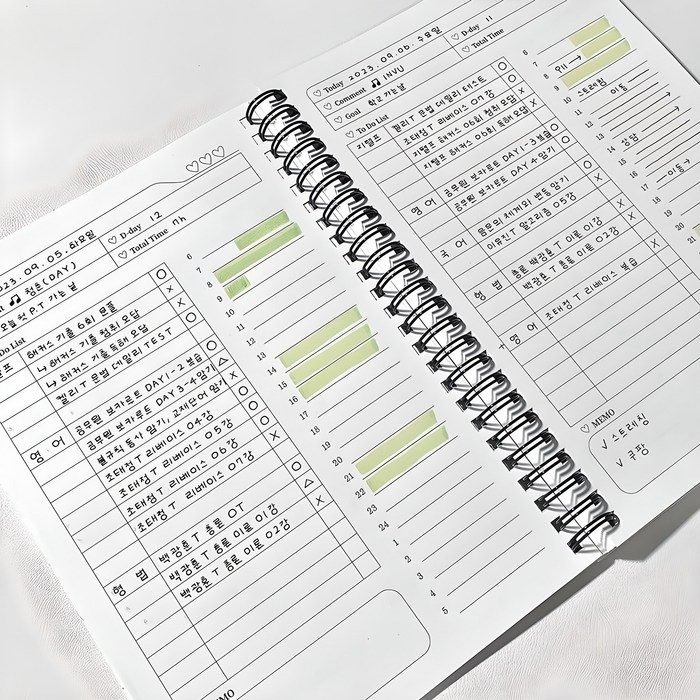 ♡ D-day 12
♡ Total Time 7h
2023. 09. 05. 화요일
🎵 청춘(DAY)
오늘 첫 P.T 가는 날
To Do List
해커스 기출 6회 문풀 O
↳ 해커스 기출 청취 오답 X
↳ 해커스 기출 독해 오답 X
켈리 T 문법 데일리 TEST O
영어
공무원 보카루트 DAY 1-2 복습 O
공무원 보카루트 DAY 3-4 암기 △
불규칙 동사 암기, 교재단어 암기 X
조태정 T 리베이스 04강 O
조태정 T 리베이스 05강 O
조태정 T 리베이스 06강 O
조태정 T 리베이스 07강 X
형법
백광훈 T 총론 OT O
백광훈 T 총론 이론 01강 △
백광훈 T 총론 이론 02강 X
6
7
8
9
10
11
12
13
14
15
16
17
18
19
20
21
22
23
24
1
2
3
4
5
♡ Today 2023. 09. 06. 수요일
♡ D-day 11
♡ Comment 🎵 INVU
♡ Total Time
♡ Goal 학교 가는 날
♡ To Do List
지텔프 켈리 T 문법 데일리 테스트 O
조태정 T 리베이스 07강 O
지텔프 해커스 06회 청취 오답 X
지텔프 해커스 06회 독해 오답 X
영어 공무원 보카루트 DAY 1-3 복습 O
공무원 보카루트 DAY 4 암기 O
국어
이유진 T 알고리즘 05강 X
형법 총론 백광훈 T 이론 01강
백광훈 T 총론 이론 02강 X
영어 조태정 T 리베이스 복습 X
6
7
8
9
10 스트레칭
11 이동
12
13
14
15
16
17 이동
18
19
20
21
♡ MEMO
√ 스트레칭
√ 쿠팡